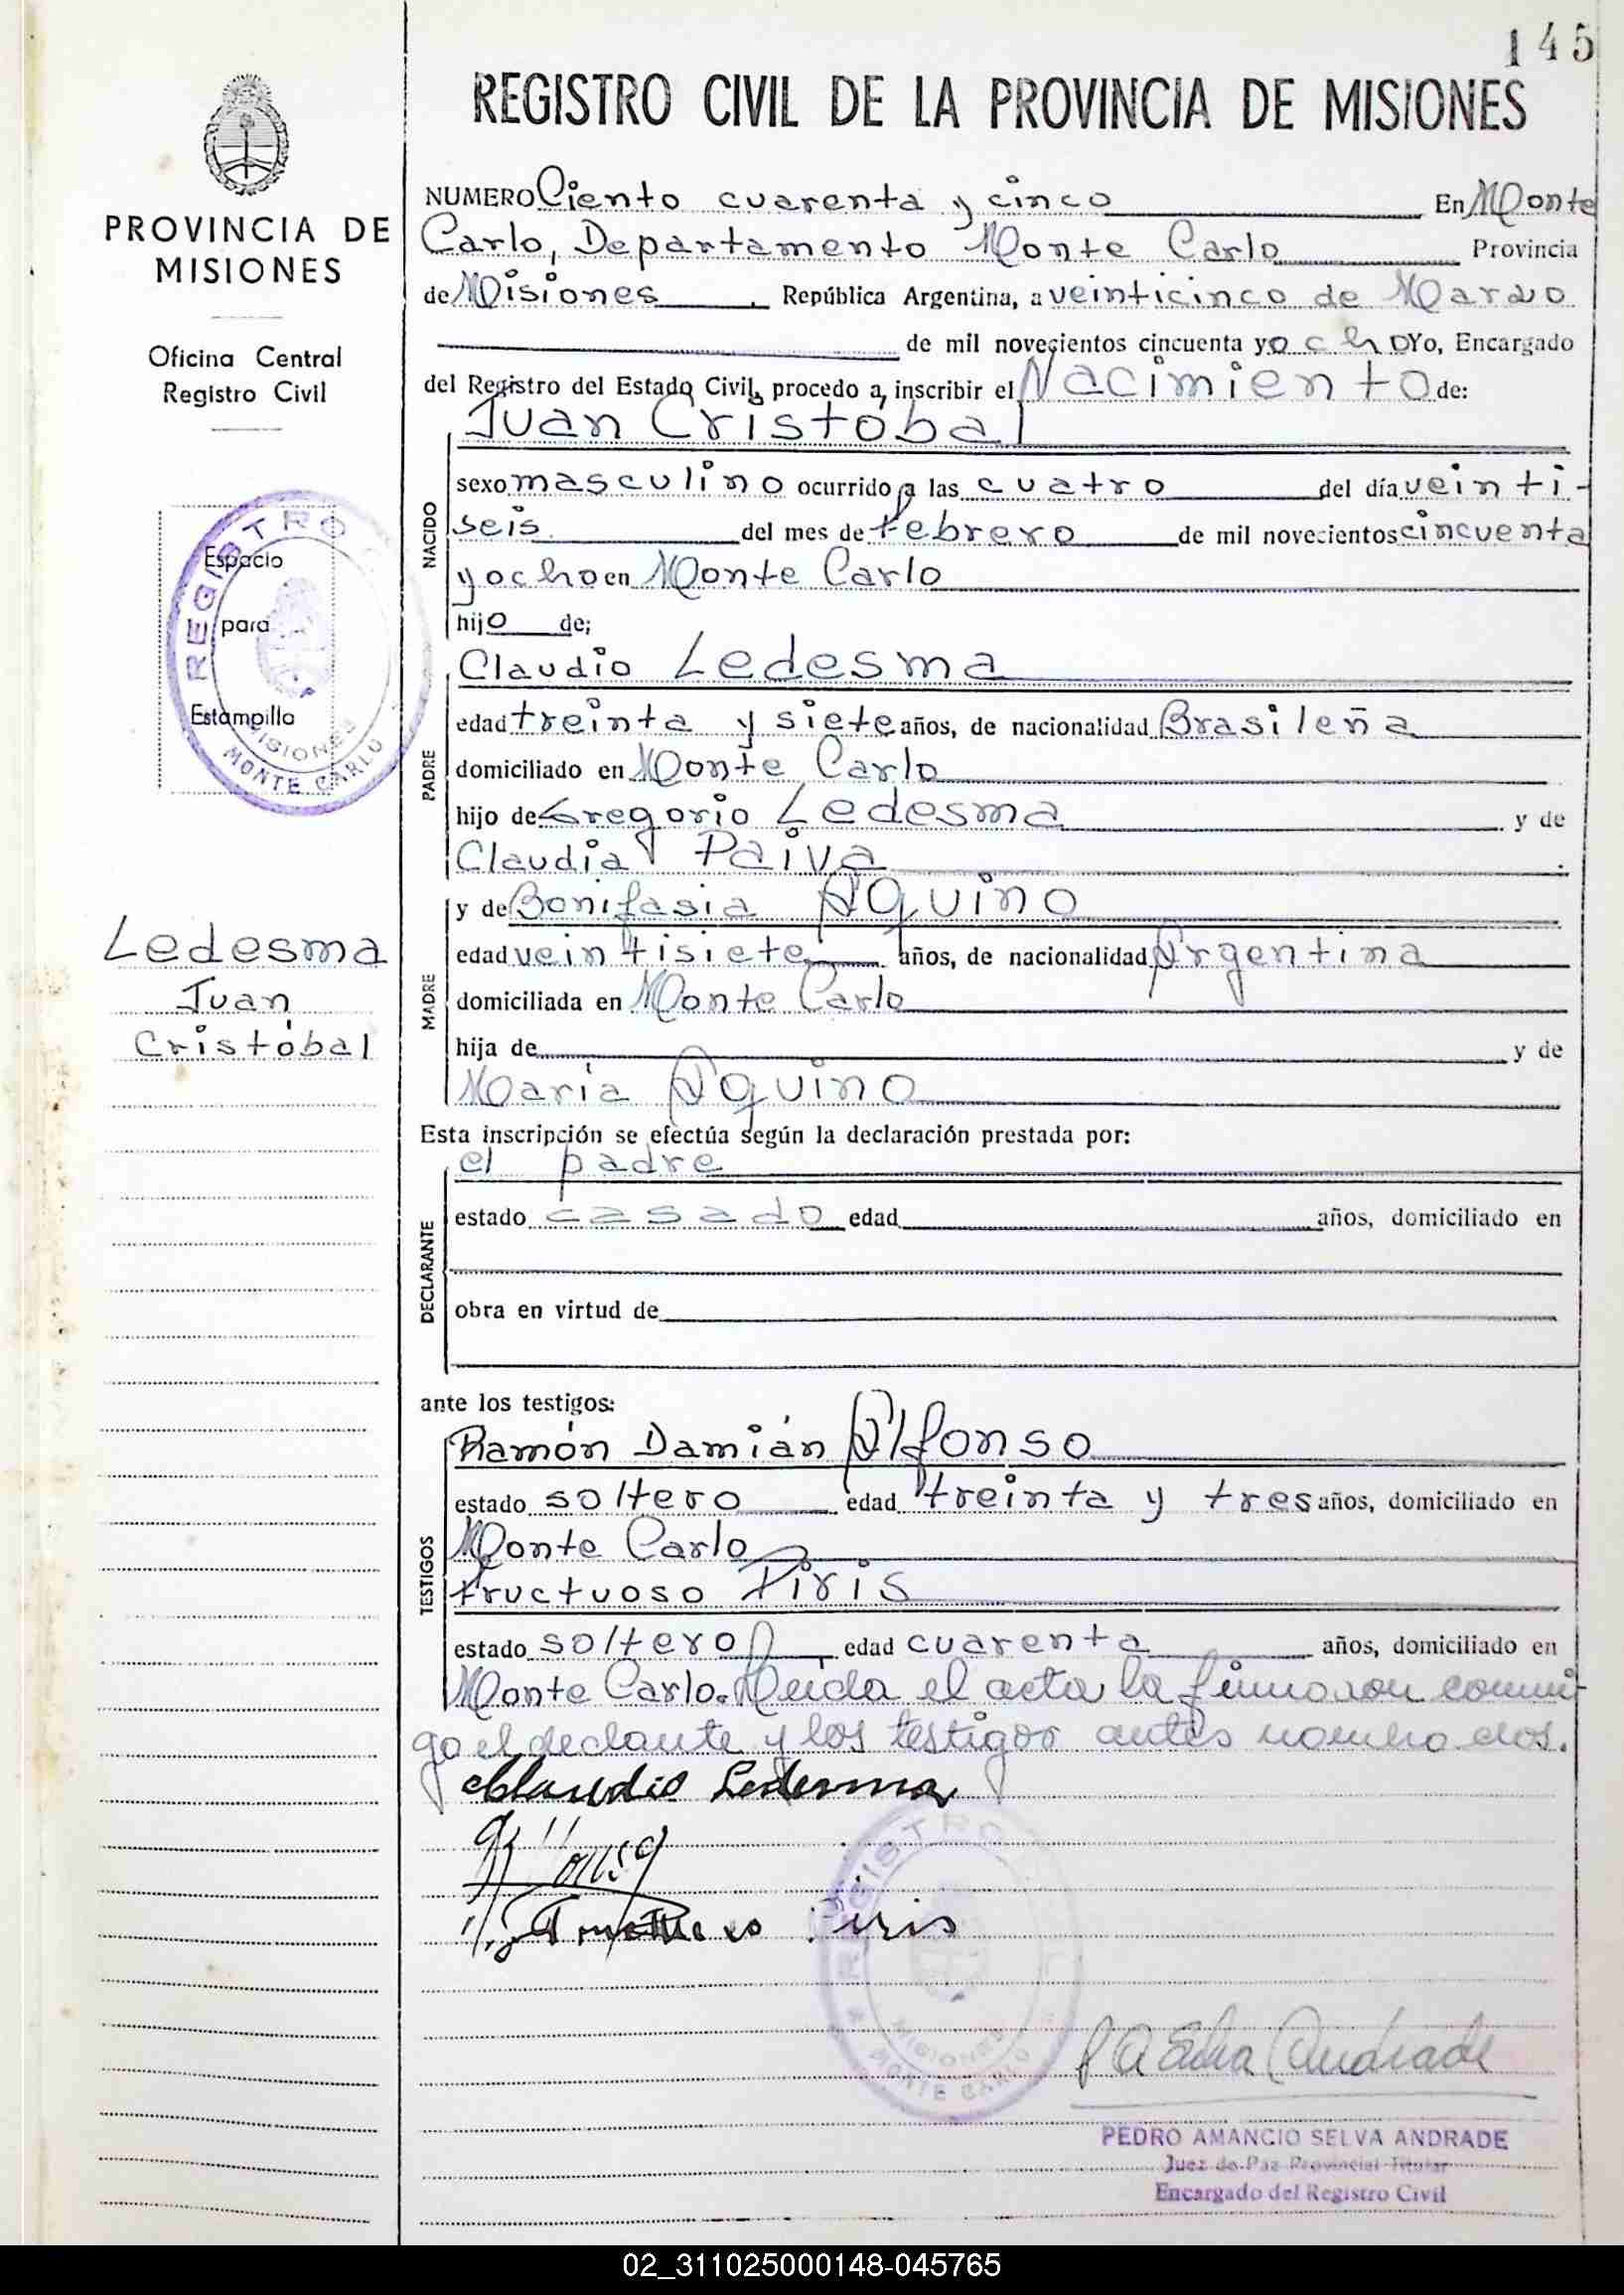 145
REGISTRO CIVIL DE LA PROVINCIA DE MISIONES
PROVINCIA DE
MISIONES
Oficina Central
Registro Civil
REGISTRO
Espacio
para
Estampilla
MISIONES
MONTE CARLO
Ledesma
Juan
Cristóbal
NUMERO Ciento cuarenta y cinco En Monte
Carlo, Departamento Monte Carlo Provincia
de Misiones, República Argentina, a veinticinco de Marzo
de mil novecientos cincuenta y ocho Yo, Encargado
del Registro del Estado Civil, procedo a inscribir el Nacimiento de:
Juan Cristóbal
NACIDO
sexo masculino ocurrido a las cuatro del día veinti-
seis del mes de febrero de mil novecientos cincuenta
y ocho en Monte Carlo
hijo de;
PADRE
Claudio Ledesma
edad treinta y siete años, de nacionalidad Brasileña
domiciliado en Monte Carlo
hijo de Gregorio Ledesma y de
Claudia Paiva
MADRE
y de Bonifasia Aquino
edad veintisiete años, de nacionalidad Argentina
domiciliada en Monte Carlo
hija de y de
María Aquino
Esta inscripción se efectúa según la declaración prestada por:
DECLARANTE
el padre
estado casado edad años, domiciliado en
obra en virtud de
ante los testigos:
TESTIGOS
Ramón Damián Alfonso
estado soltero edad treinta y tres años, domiciliado en
Monte Carlo
Fructuoso Piris
estado soltero edad cuarenta años, domiciliado en
Monte Carlo. Leida el acta la firmaron conmi-
go el declante y los testigos antes nombrados.
Claudio Ledesma
Piris
REGISTRO
MISIONES
MONTE CARLO
P A Selva Andrade
PEDRO AMANCIO SELVA ANDRADE
Juez de Paz Provincial Titular
Encargado del Registro Civil
02_311025000148-045765